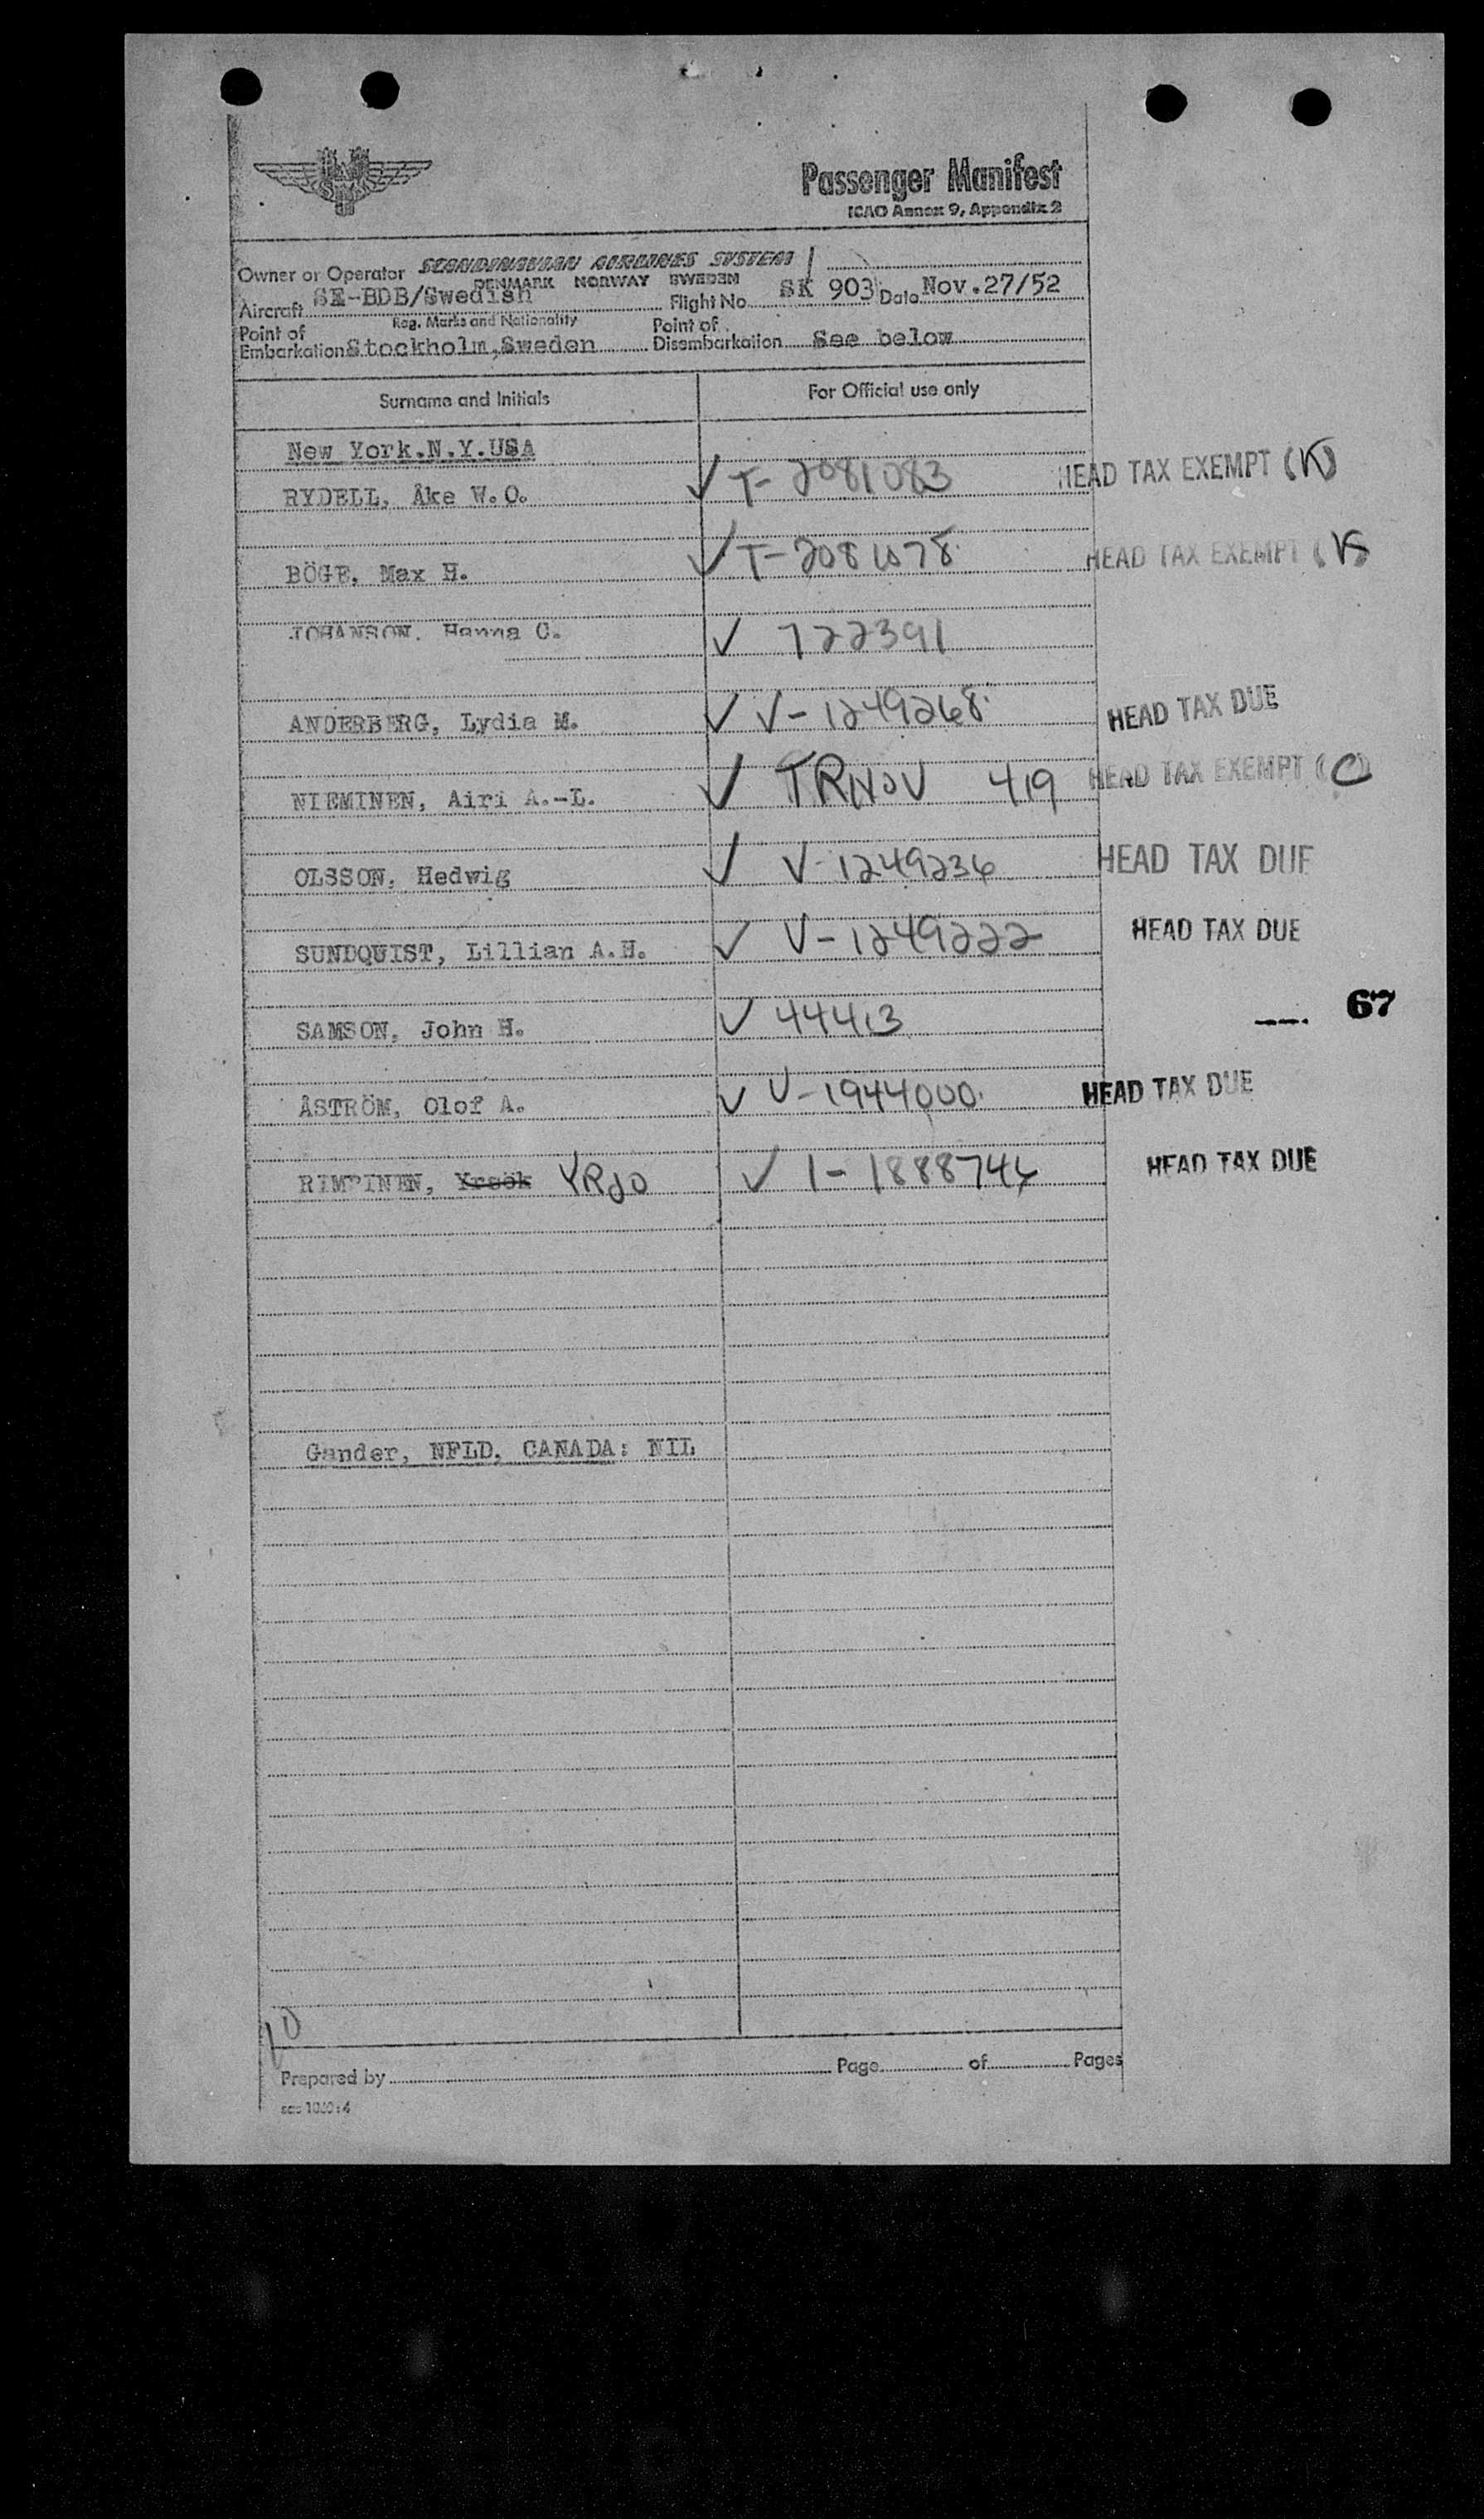 SAS
Passenger Manifest
ICAO Annex 9, Appendix 2
Owner or Operator SCANDINAVIAN AIRLINES SYSTEM
DENMARK NORWAY SWEDEN
Aircraft SE-BDB/Swedish Flight No. SK 903 Date Nov.27/52
Reg. Marks and Nationality
Point of Embarkation Stockholm,Sweden Point of Disembarkation See below
Surname and Initials For Official use only
New York.N.Y.USA
RYDELL, Åke W.O. ✓ T-2081083 HEAD TAX EXEMPT (K)
BÖGE, Max H. ✓ T-2081078 HEAD TAX EXEMPT (K)
JOHANSON, Hanna C. ✓ 722391
ANDERBERG, Lydia M. ✓ V-1249268 HEAD TAX DUE
NIEMINEN, Airi A.-L. ✓ TRNOV 419 HEAD TAX EXEMPT (C)
OLSSON, Hedwig ✓ V-1249236 HEAD TAX DUE
SUNDQUIST, Lillian A.H. ✓ V-1249222 HEAD TAX DUE
67
SAMSON, John H. ✓ 44413
ÅSTRÖM, Olof A. ✓ V-1944000 HEAD TAX DUE
RIMPINEN, YRJO ✓ 1-1888746 HEAD TAX DUE
Gander, NFLD. CANADA: NIL
10
Prepared by Page of Pages